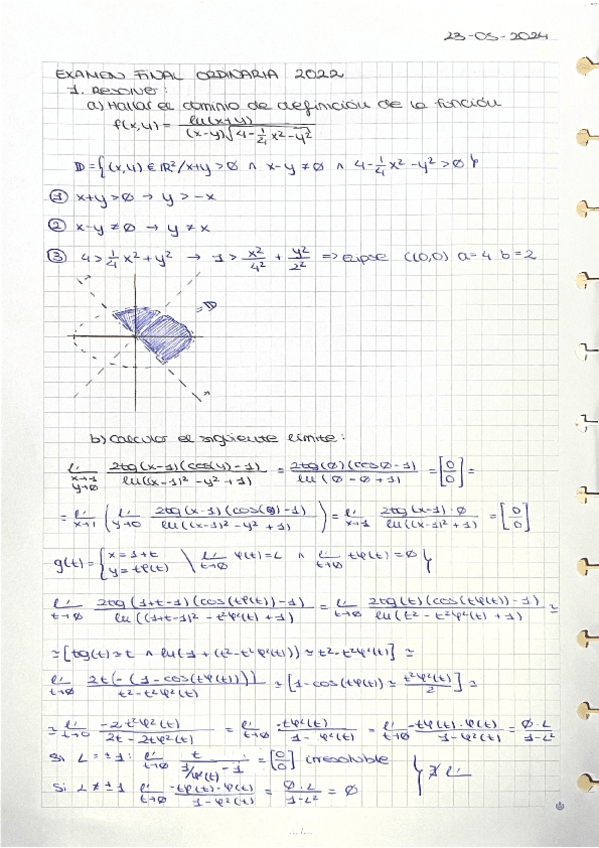 23-05-2024
EXAMEN FINAL ORDINARIA 2022
1. Resolver:
a) Hallar el dominio de definición de la función
f(x,y) = ln(x+y) / ((x-y)√(4-1/4 x²-y²))
D = {(x,y) ∈ ℝ² / x+y > 0 ∧ x-y ≠ 0 ∧ 4-1/4 x²-y² > 0}
① x+y > 0 → y > -x
② x-y ≠ 0 → y ≠ x
③ 4 > 1/4 x² + y² → 1 > x²/4² + y²/2² => elipse C(0,0) a=4 b=2
= D
b) Calcular el siguiente límite:
lí x→1 y→0 2tg(x-1)(cos(y)-1) / ln((x-1)²-y²+1) = 2tg(0)(cos0-1) / ln(0-0+1) = [0/0] =
= lí x→1 ( lí y→0 2tg(x-1)(cos(y)-1) / ln((x-1)²-y²+1) ) = lí x→1 2tg(x-1)·0 / ln((x-1)²+1) = [0/0]
g(t) = { x=1+t y=tφ(t) \ lí t→0 φ(t)=L ∧ lí t→0 tφ(t)=0 }
lí t→0 2tg(1+t-1)(cos(tφ(t))-1) / ln((1+t-1)²-t²φ²(t)+1) = lí t→0 2tg(t)(cos(tφ(t))-1) / ln(t²-t²φ²(t)+1) ≃
≃ [tg(t)≃t ∧ ln(1+(t²-t²φ²(t))) ≃ t²-t²φ²(t)] ≃
lí t→0 2t(-(1-cos(tφ(t)))) / t²-t²φ²(t) ≃ [1-cos(tφ(t)) ≃ t²φ²(t)/2] ≃
≃ lí t→0 -2t²φ²(t) / 2t-2tφ²(t) = lí t→0 -tφ²(t) / 1-φ²(t) = lí t→0 -tφ(t)·φ(t) / 1-φ²(t) = 0·L / 1-L²
Si L=±1: lí t→0 t / 1/φ(t) - 1 = [0/0] irresoluble
Si L≠±1 lí t→0 -tφ(t)·φ(t) / 1-φ²(t) = 0·L / 1-L² = 0 } ∄ lí